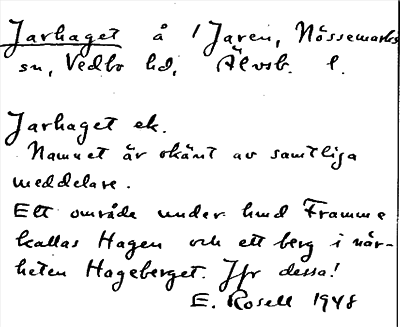 Jarhaget å 1 Jaren, Nössemarks
sn, Vedbo hd, Älvsb. l.
Jarhaget ek.
Namnet är okänt av samtliga
meddelare.
Ett område under hmd Framme
kallas Hagen och ett berg i när-
heten Hageberget. Jfr dessa!
E. Rosell 1948